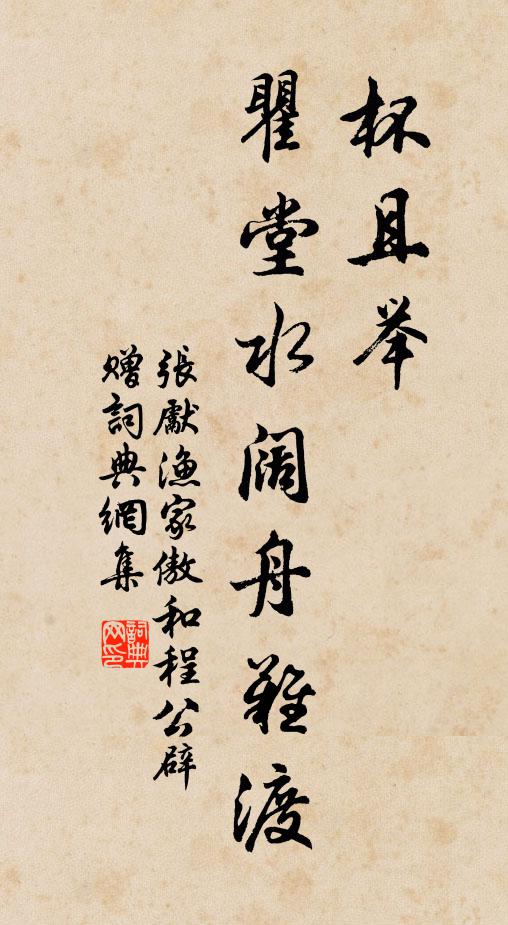 杯且举
瞿堂水阔舟難渡
張獻漁家傲和程公辟
贈詞典網集
詞典网印